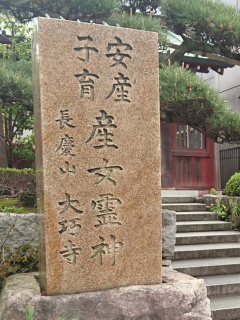 安産
子育
産女霊神
長慶山 大巧寺